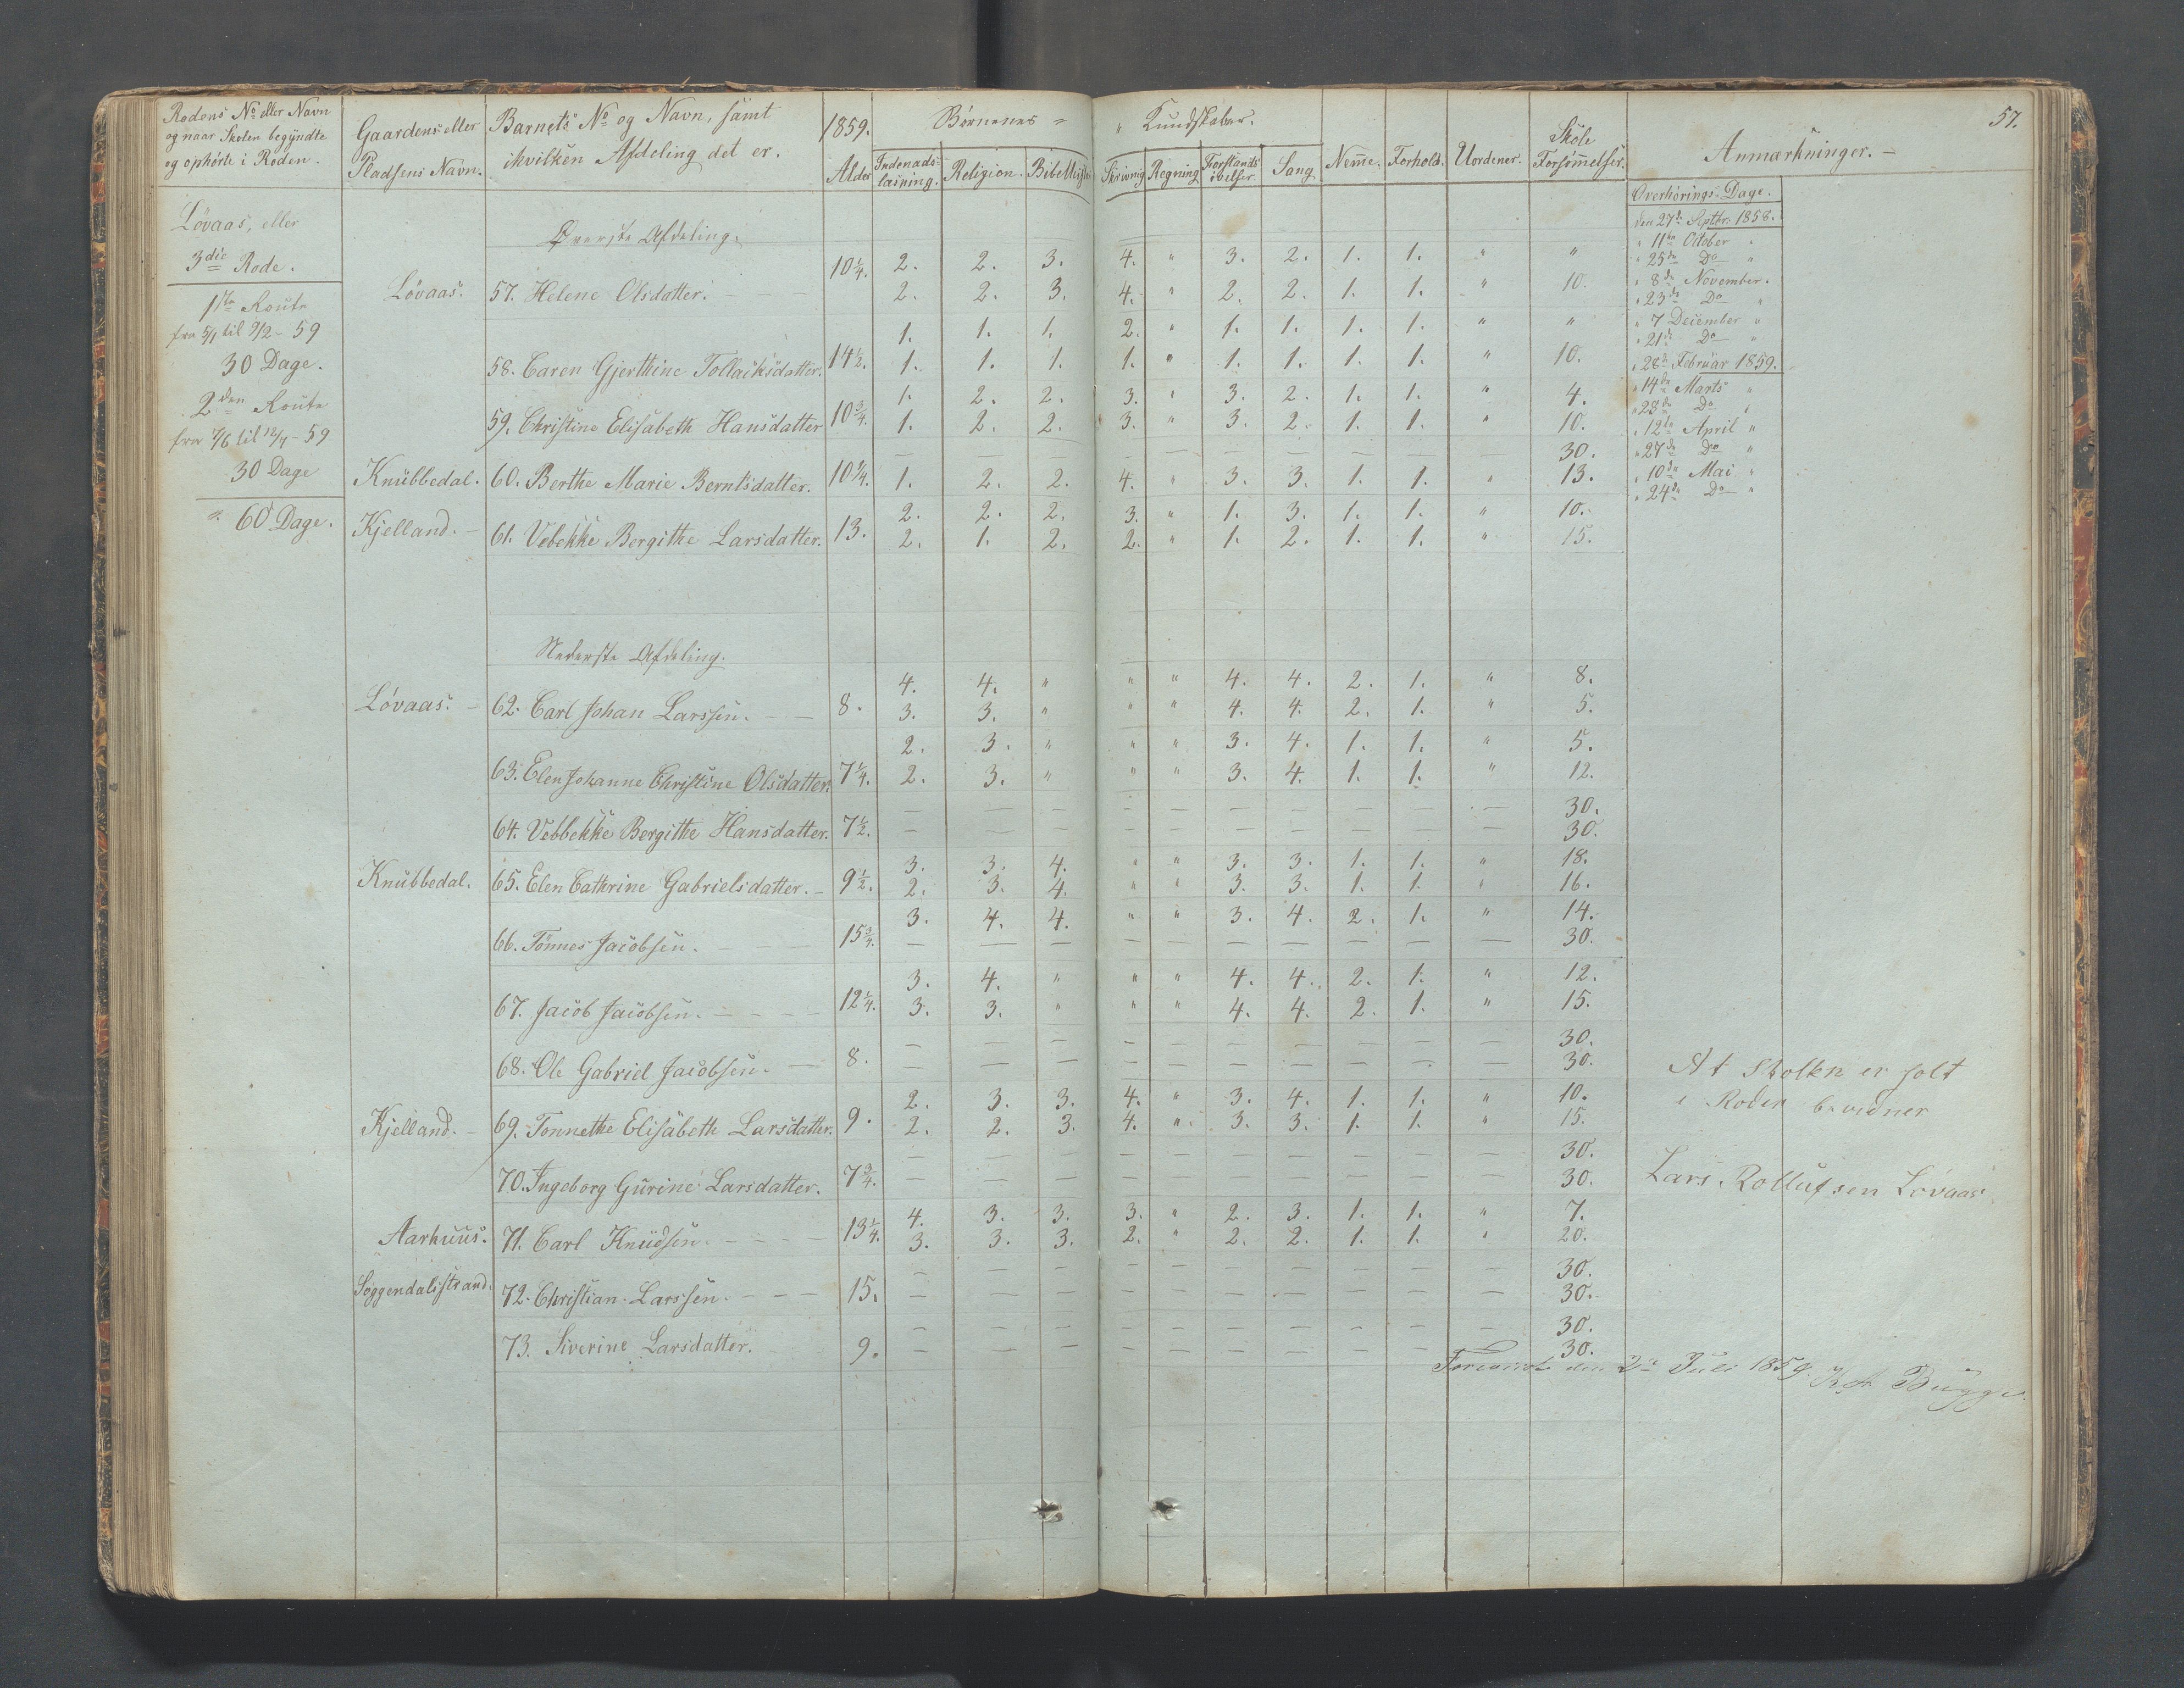 Rodens No eller Navn og naar Skolen begyndte og ophörte i Roden.
Gaardens eller Pladsens Navn.
Barnets No og Navn, samt ihvilken Afdeling det er.
1859. Alder
Börnenes = " Kundskaber.
Indenads-læsning. Religion. Bibelhistorie Skrivnig Regning Forstands övelser. Sang Nem̄e. Forhold. Uordener. Skole Forsöm̄elser. Anmærkninger. —
57.
Lövaas, eller
3die Rode.
1ste Route
fra 5/1 til 9/2 - 59
30 Dage.
2den Route
fra 7/6 til 12/4 - 59
30 Dage
60 Dage.
Overhörings-Dage.
den 27de Septbr. 1858.
" 11te October "
" 25de Do "
" 8de November.
" 23de Do "
" 7 December "
" 21de Do "
" 28de Februar 1859.
" 14de Marts "
" 28de Do "
" 12te April "
" 27de Do "
" 10de Mai "
" 24de Do "
Överste Afdeling.
2. 2. 3. 4. " 3. 2. 1. 1. " "
Lövaas. 57. Helene Olsdatter. 10 1/4. 2. 2. 3. 4. " 2. 2. 1. 1. " 10.
1. 1. 1. 2. " 1. 1. 1. 1. " "
58. Caren Gjerthine Tollacksdatter. 14 1/2. 1. 1. 1. 1. " 1. 1. 1. 1. " 10.
1. 2. 2. 3. " 3. 2. 1. 1. " 4.
59. Christine Elisabeth Hansdatter 10 3/4. 1. 2. 2. 3. " 3. 2. 1. 1. " 10.
— — — — — — — — — — 30.
Knubbedal. 60. Berthe Marie Berntsdatter. 10 1/4. 1. 2. 2. 4. " 3. 3. 1. 1. " 13.
2. 2. 2. 3. " 1. 3. 1. 1. " 10.
Kjelland. — 61. Vebekke Bergithe Larsdatter. 13. 2. 1. 2. 2. " 1. 2. 1. 1. " 15.
Nederste Afdeling.
4. 4. " " " 4. 4. 2. 1. " 8.
Lövaas. — 62. Carl Johan Larssen. — — 8. 3. 3. " " " 4. 4. 2. 1. " 5.
2. 3. " " " 3. 4. 1. 1. " 5.
63. Elen Johanne Christine Olsdatter. 7 1/4. 2. 3. " " " 3. 4. 1. 1. " 12.
— — — — — — — — — — 30.
64. Vebbekke Bergithe Hansdatter. 7 1/2. — — — — — — — — — — 30.
3. 3. 4. " " 3. 3. 1. 1. " 18.
Knubbedal. 65. Elen Cathrine Gabrielsdatter. — 9 1/2. 2. 3. 4. " " 3. 3. 1. 1. " 16.
3. 4. 4. " " 3. 4. 2. 1. " 14.
66. Tönnes Jacobsen. — — — 15 3/4. — — — — — — — — — — 30.
3. 4. " " " 4. 4. 2. 1. " 12.
67. Jacob Jacobsen. — — — 12 1/4. 3. 3. " " " 4. 4. 2. 1. " 15.
— — — — — — — — — — 30.
68. Ole Gabriel Jacobsen. — 8. — — — — — — — — — — 30.
2. 3. 3. 4. " 3. 4. 1. 1. " 10.
Kjelland. — 69. Tonnethe Elisabeth Larsdatter. 9. 2. 2. 3. 4. " 3. 3. 1. 1. " 15.
— — — — — — — — — — 30.
70. Ingeborg Gurine Larsdatter. 7 3/4. — — — — — — — — — — 30.
4. 3. 3. 3. " 2. 3. 1. 1. " 7.
Aarhuus. 71. Carl Knudsen. — — — 13 1/4. 3. 3. 3. 2. " 2. 2. 1. 1. " 20.
— — — — — — — — — — 30.
Soggendalsstrand. 72. Christian Larssen. — — — 15. — — — — — — — — — — 30.
— — — — — — — — — — 30.
73. Siverine Larsdatter. 9. — — — — — — — — — — 30.
At Skolen er holt
i Roden bevidner
Lars Rollufsen Lövaas
Foreviist den 2de Juli 1859. Bugge.